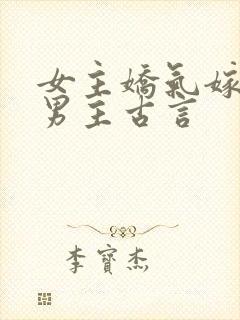 女主嬌氣嫁
男主古言
李寶杰